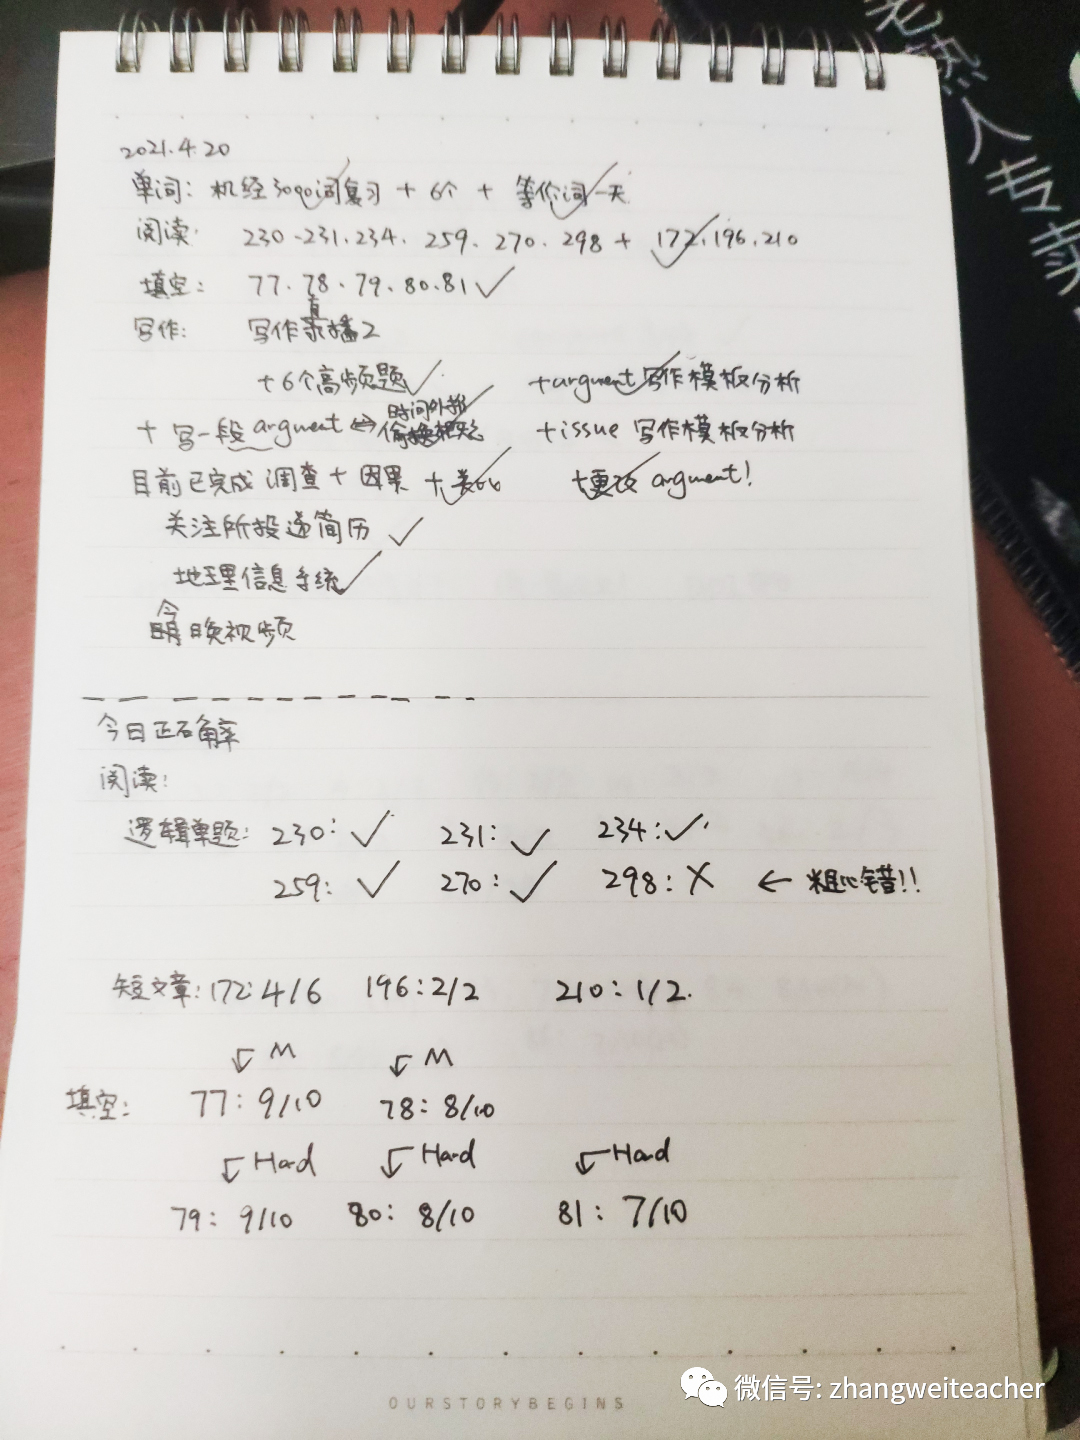 老热人专索
2021.4.20
单词: 机经3000词复习 + 6个 + 等价词一天
阅读: 230、231、234、259、270、298 + 172、196、210
填空: 77、78、79、80、81 ✓
直
写作: 写作录播2
+6个高频题✓ +argument写作模板分析
时间外推
+ 写一段 argument ⇔ 偷换概念 +issue 写作模板分析
目前已完成 调查 + 因果 + 类比 +更改 argument!
关注所投递简历 ✓
地理信息系统 ✓
今
明晚视频
今日正确率
阅读:
逻辑单题: 230: ✓ 231: ✓ 234: ✓
259: ✓ 270: ✓ 298: X ← 粗心错!!
短文章: 172: 4/6 196: 2/2 210: 1/2.
M M
填空: 77: 9/10 78: 8/10
Hard Hard Hard
79: 9/10 80: 8/10 81: 7/10
OURSTORYBEGINS
微信号: zhangweiteacher